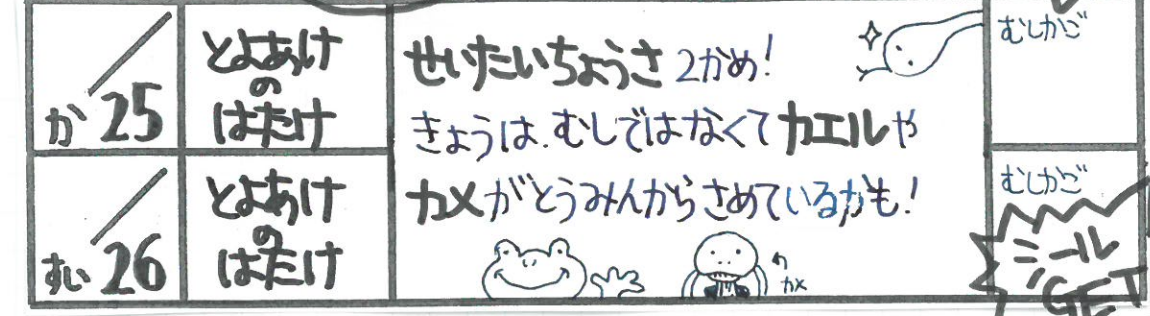 か 25
とよあけ
の
はたけ
せいたいちょうさ 2かめ!
きょうは、むしではなくてカエルや
カメがとうみんからさめているかも!
カメ
むしかご
すい 26
とよあけ
の
はたけ
むしかご
シール
GET